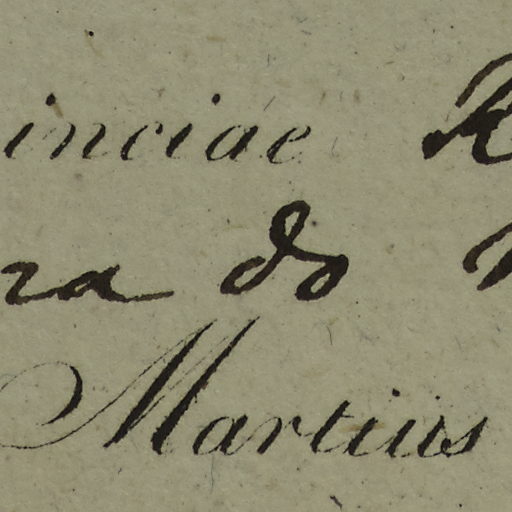 inciae R
ra do
Martius